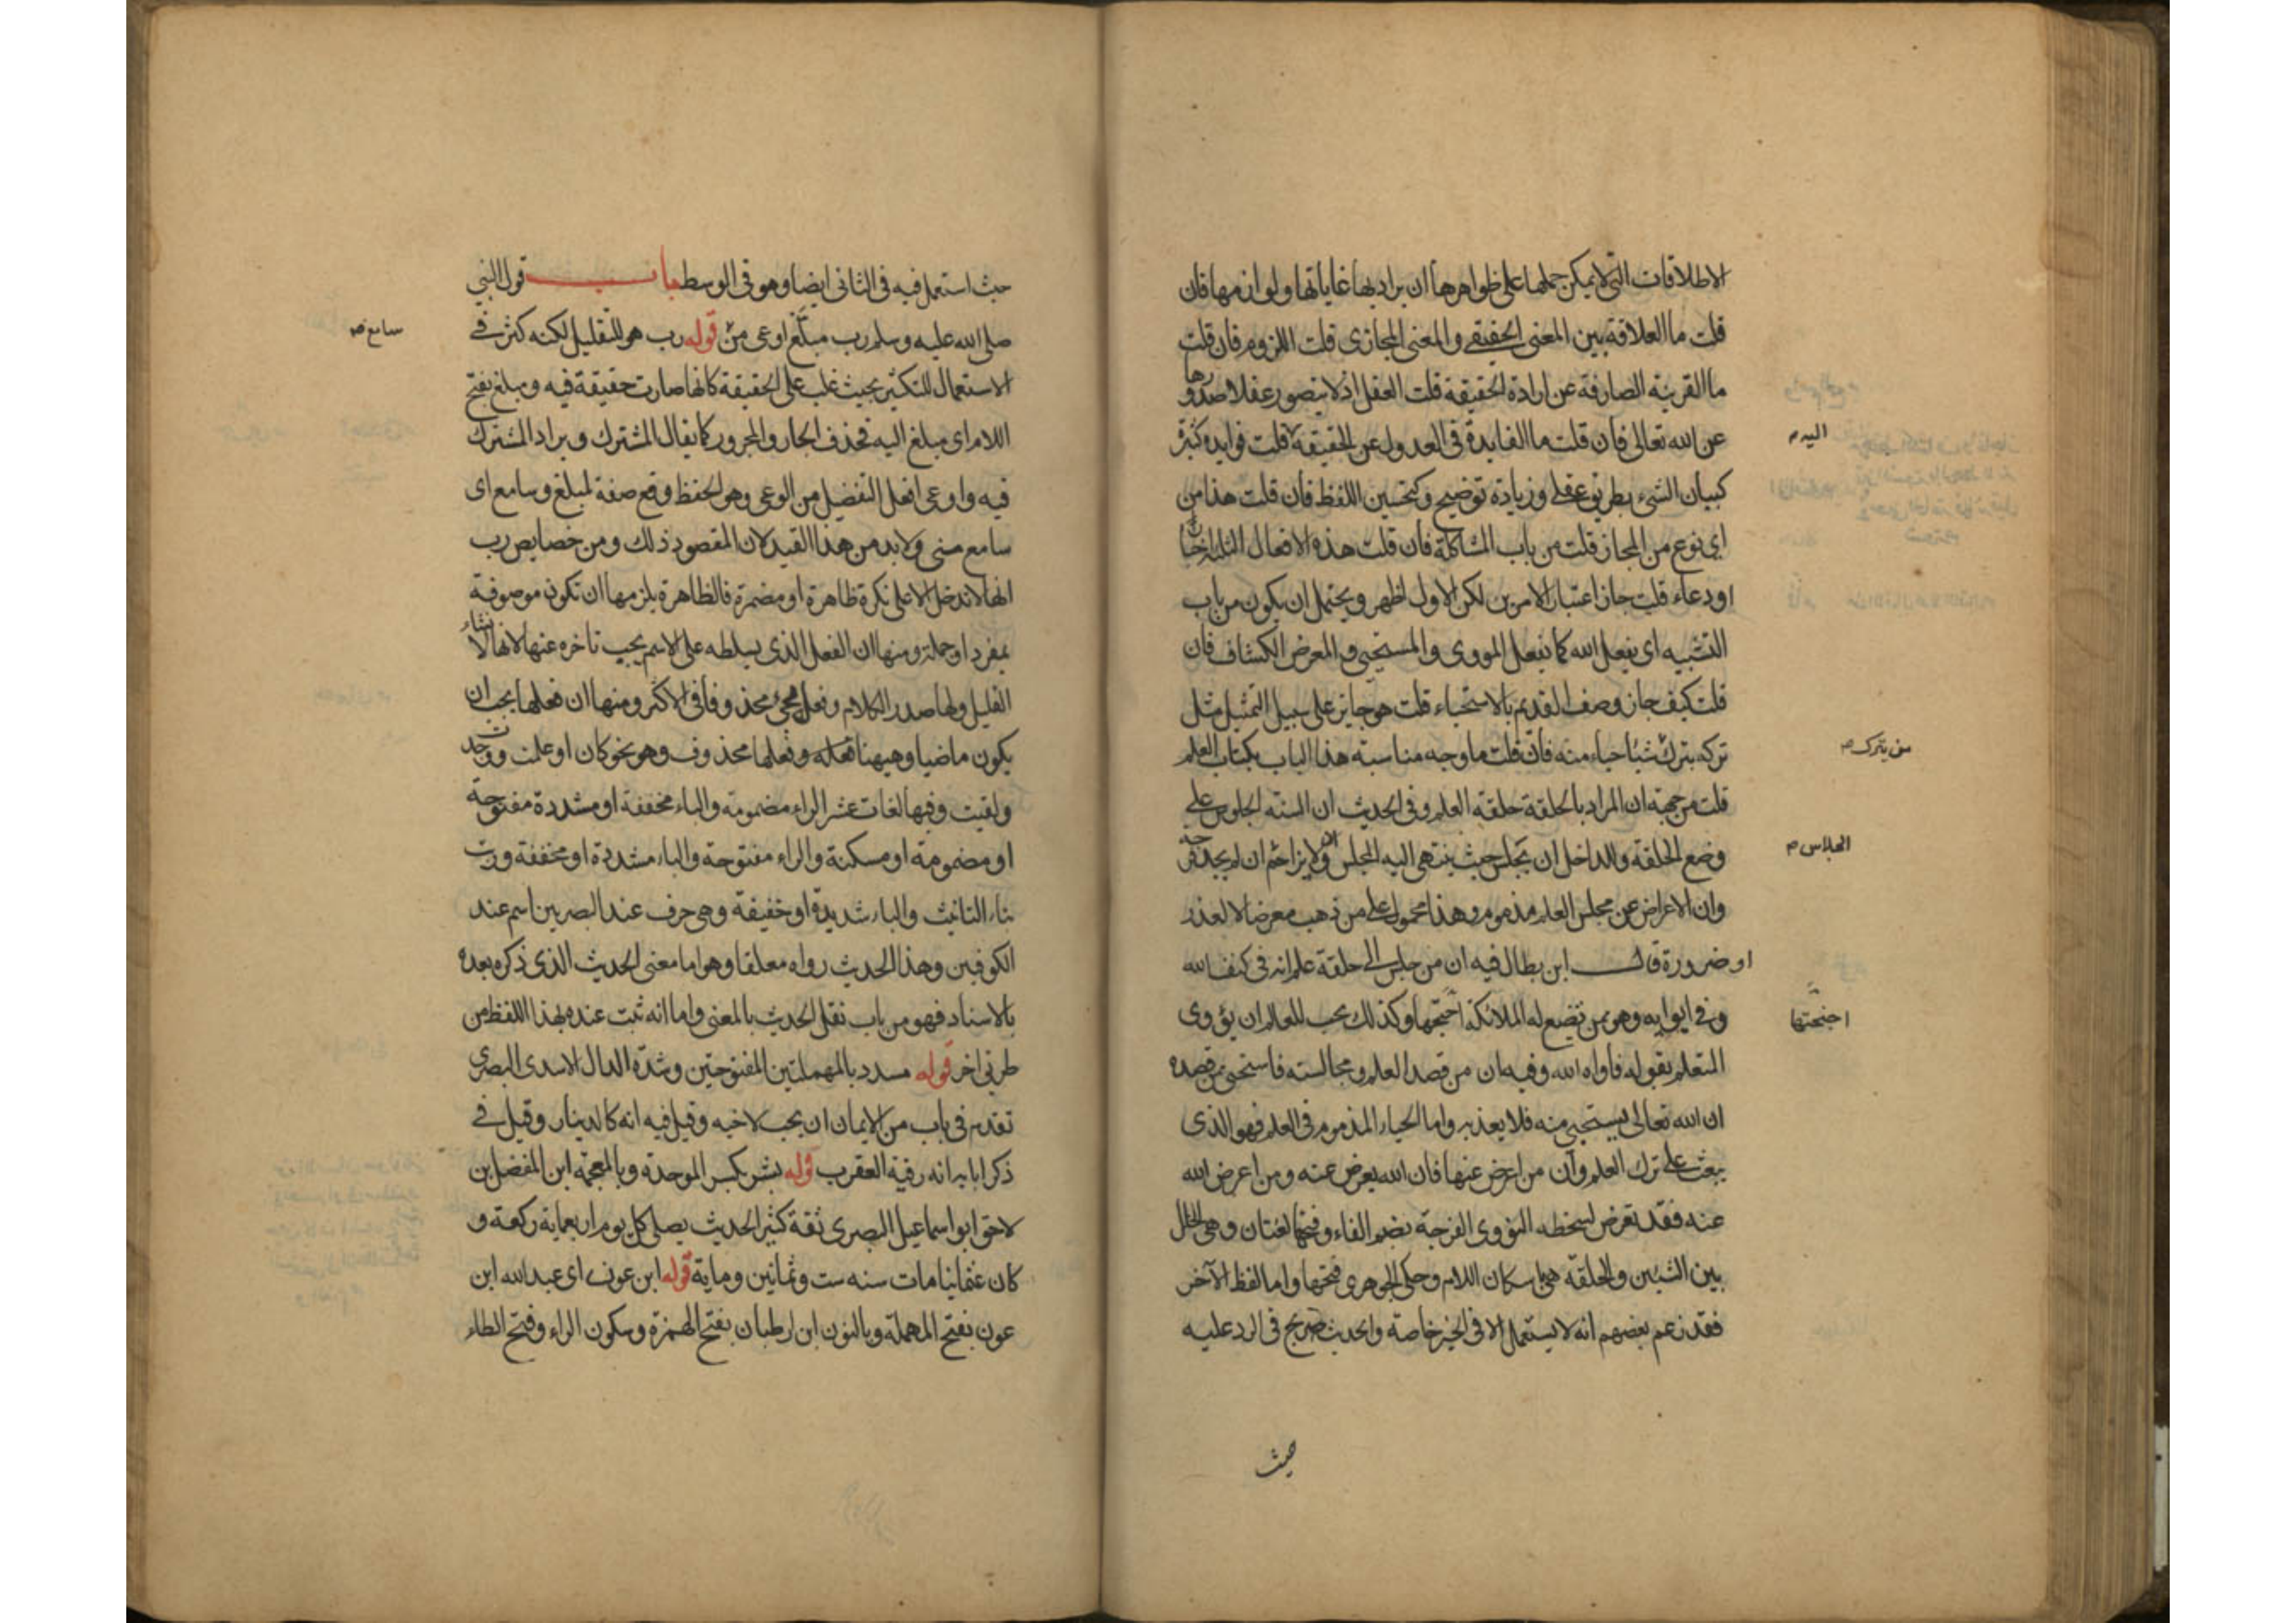 الاطلاقات التي لا يمكن حملها على ظواهرها ان يراد بها غاياتها ولوازمها فان
قلت ما العلاقة بين المعنى الحقيقي والمعنى المجازي قلت اللزوم فان قلت
ما القرينة الصارفة عن ارادة الحقيقة قلت العقل اذ لا يتصور عقلا صدورها
عن الله تعالى فان قلت ما الفايدة في العدول عن الحقيقة قلت فوايده كثيرة
اليه م
كبيان الشيء بطريق عقلي وزيادة توضيح وكتحسين اللفظ فان قلت هذا من
اي نوع من المجاز قلت من باب المشاكلة فان قلت هذه الافعال الثلثة اخبار
او دعاء قلت جاز اعتبار الامرين لكن الاول اظهر ويحتمل ان يكون من باب
التشبيه اي يفعل الله كما يفعل المووي والمستحيي والمعرض الكشاف فان
قلت كيف جاز وصف القديم بالاستحياء قلت هو جايز على سبيل التمثيل مثل
تركه بترك شيئا حياء منه فان قلت ما وجه مناسبة هذا الباب بكتاب العلم
من يترك م
قلت من جهة ان المراد بالحلقة حلقة العلم وفي الحديث ان السنة الجلوس على
وضع الحلقة وللداخل ان يجلس حيث ينتهى اليه المجلس ولا يزاحم ان لم يجد فرجة
الجلاس م
وان الاعراض عن مجلس العلم مذموم وهذا محمول على من ذهب معرضا لا لعذر
او ضرورة قال ابن بطال فيه ان من جلس الى حلقة علم انه في كنف الله
وفي ايوايه وهو ممن تضع له الملائكة اجنحتها وكذلك يجب للعالم ان يؤوي
اجنحتها
المتعلم بقوله فأواه الله وفيه ان من قصد العلم ومجالسته فاستحيى ممن قصده
ان الله تعالى يستحيي منه فلا يعذبه واما الحياء المذموم في العلم فهو الذي
يبعث على ترك العلم وان من اعرض عنها فان الله يعرض عنه ومن اعرض الله
عنه فقد تعرض لسخطه النووي الفرجة بضم الفاء وفتحها لغتان وهي الخلل
بين الشيئين والحلقة هي باسكان اللام وحكى الجوهري فتحها واما لفظ الآخر
فقد زعم بعضهم انه لا يستعمل الا في الخير خاصة والحديث صريح في الرد عليه
حيث
حيث استعمل فيه في الثاني ايضا وهو في الوسط باب قول النبي
صلى الله عليه وسلم رب مبلغ اوعى من قوله رب هو للتقليل لكنه كثر في
سامع صح
الاستعمال للتكثير بحيث غلب على الحقيقة كانها صارت حقيقة فيه ومبلغ بفتح
اللام اي مبلغ اليه فحذف الجار والمجرور كما يقال المشترك ويراد المشترك
فيه واوعى افعل التفضيل من الوعي وهو الحفظ وقع صفة لمبلغ وسامع اي
سامع مني ولا بد من هذا القيد لان المقصود ذلك ومن خصايص رب
انها لا تدخل الا على نكرة ظاهرة او مضمرة فالظاهرة يلزمها ان تكون موصوفة
بمفرد او جملة ومنها ان الفعل الذي يسلطه على الاسم يجب تاخره عنها لانها لانشاء
القليل ولها صدر الكلام وفعلها يجيء محذوفا في الاكثر ومنها ان فعلها يجب ان
يكون ماضيا وهيهنا فعله وفعلها محذوف وهو نحو كان او علمت ووجدت
ولقيت وفيها لغات عشر الراء مضمومة والباء مخففة او مشددة مفتوحة
او مضمومة او مسكنة والراء مفتوحة والباء مشددة او مخففة وربت
بتاء التانيث والباء شديدة او خفيفة وهي حرف عند البصريين اسم عند
الكوفيين وهذا الحديث رواه معلقا وهو اما معنى الحديث الذي ذكره بعده
بالاسناد فهو من باب نقل الحديث بالمعنى واما انه ثبت عنده بهذا اللفظ من
طريق اخر قوله مسدد بالمهملتين المفتوحتين وشدة الدال الاسدي البصري
تقدم في باب من الايمان ان يحب لاخيه وقيل فيه انه كالدينار وقيل في
ذكر ابايه انه رقية العقرب قوله بشر بكسر الموحدة وبالمعجمة ابن المفضل بن
لاحق ابو اسماعيل البصري ثقة كثير الحديث يصلي كل يوم اربعماية ركعة و
كان عثمانيا مات سنه ست وثمانين وماية قوله ابن عون اي عبد الله ابن
عون بفتح المهملة وبالنون ابن ارطبان بفتح الهمزة وسكون الراء وفتح الطاء